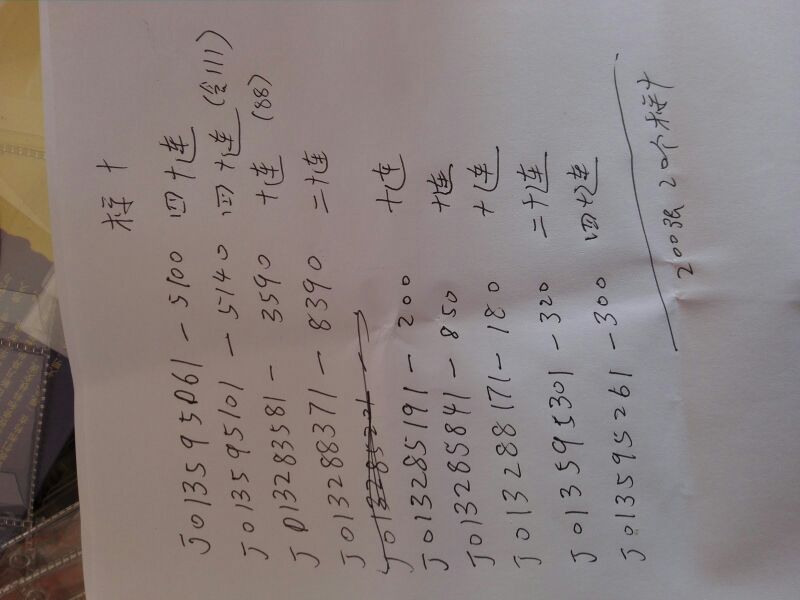 标十
J013595061-5100 四十连
J013595101-5140 四十连 (含111)
J013283581-3590 十连 (88)
J013288371-8390 二十连
J013285191-200 十连
J013285841-850 十连
J013288171-180 十连
J013595301-320 二十连
J013595261-300 四十连
200张 20个标十